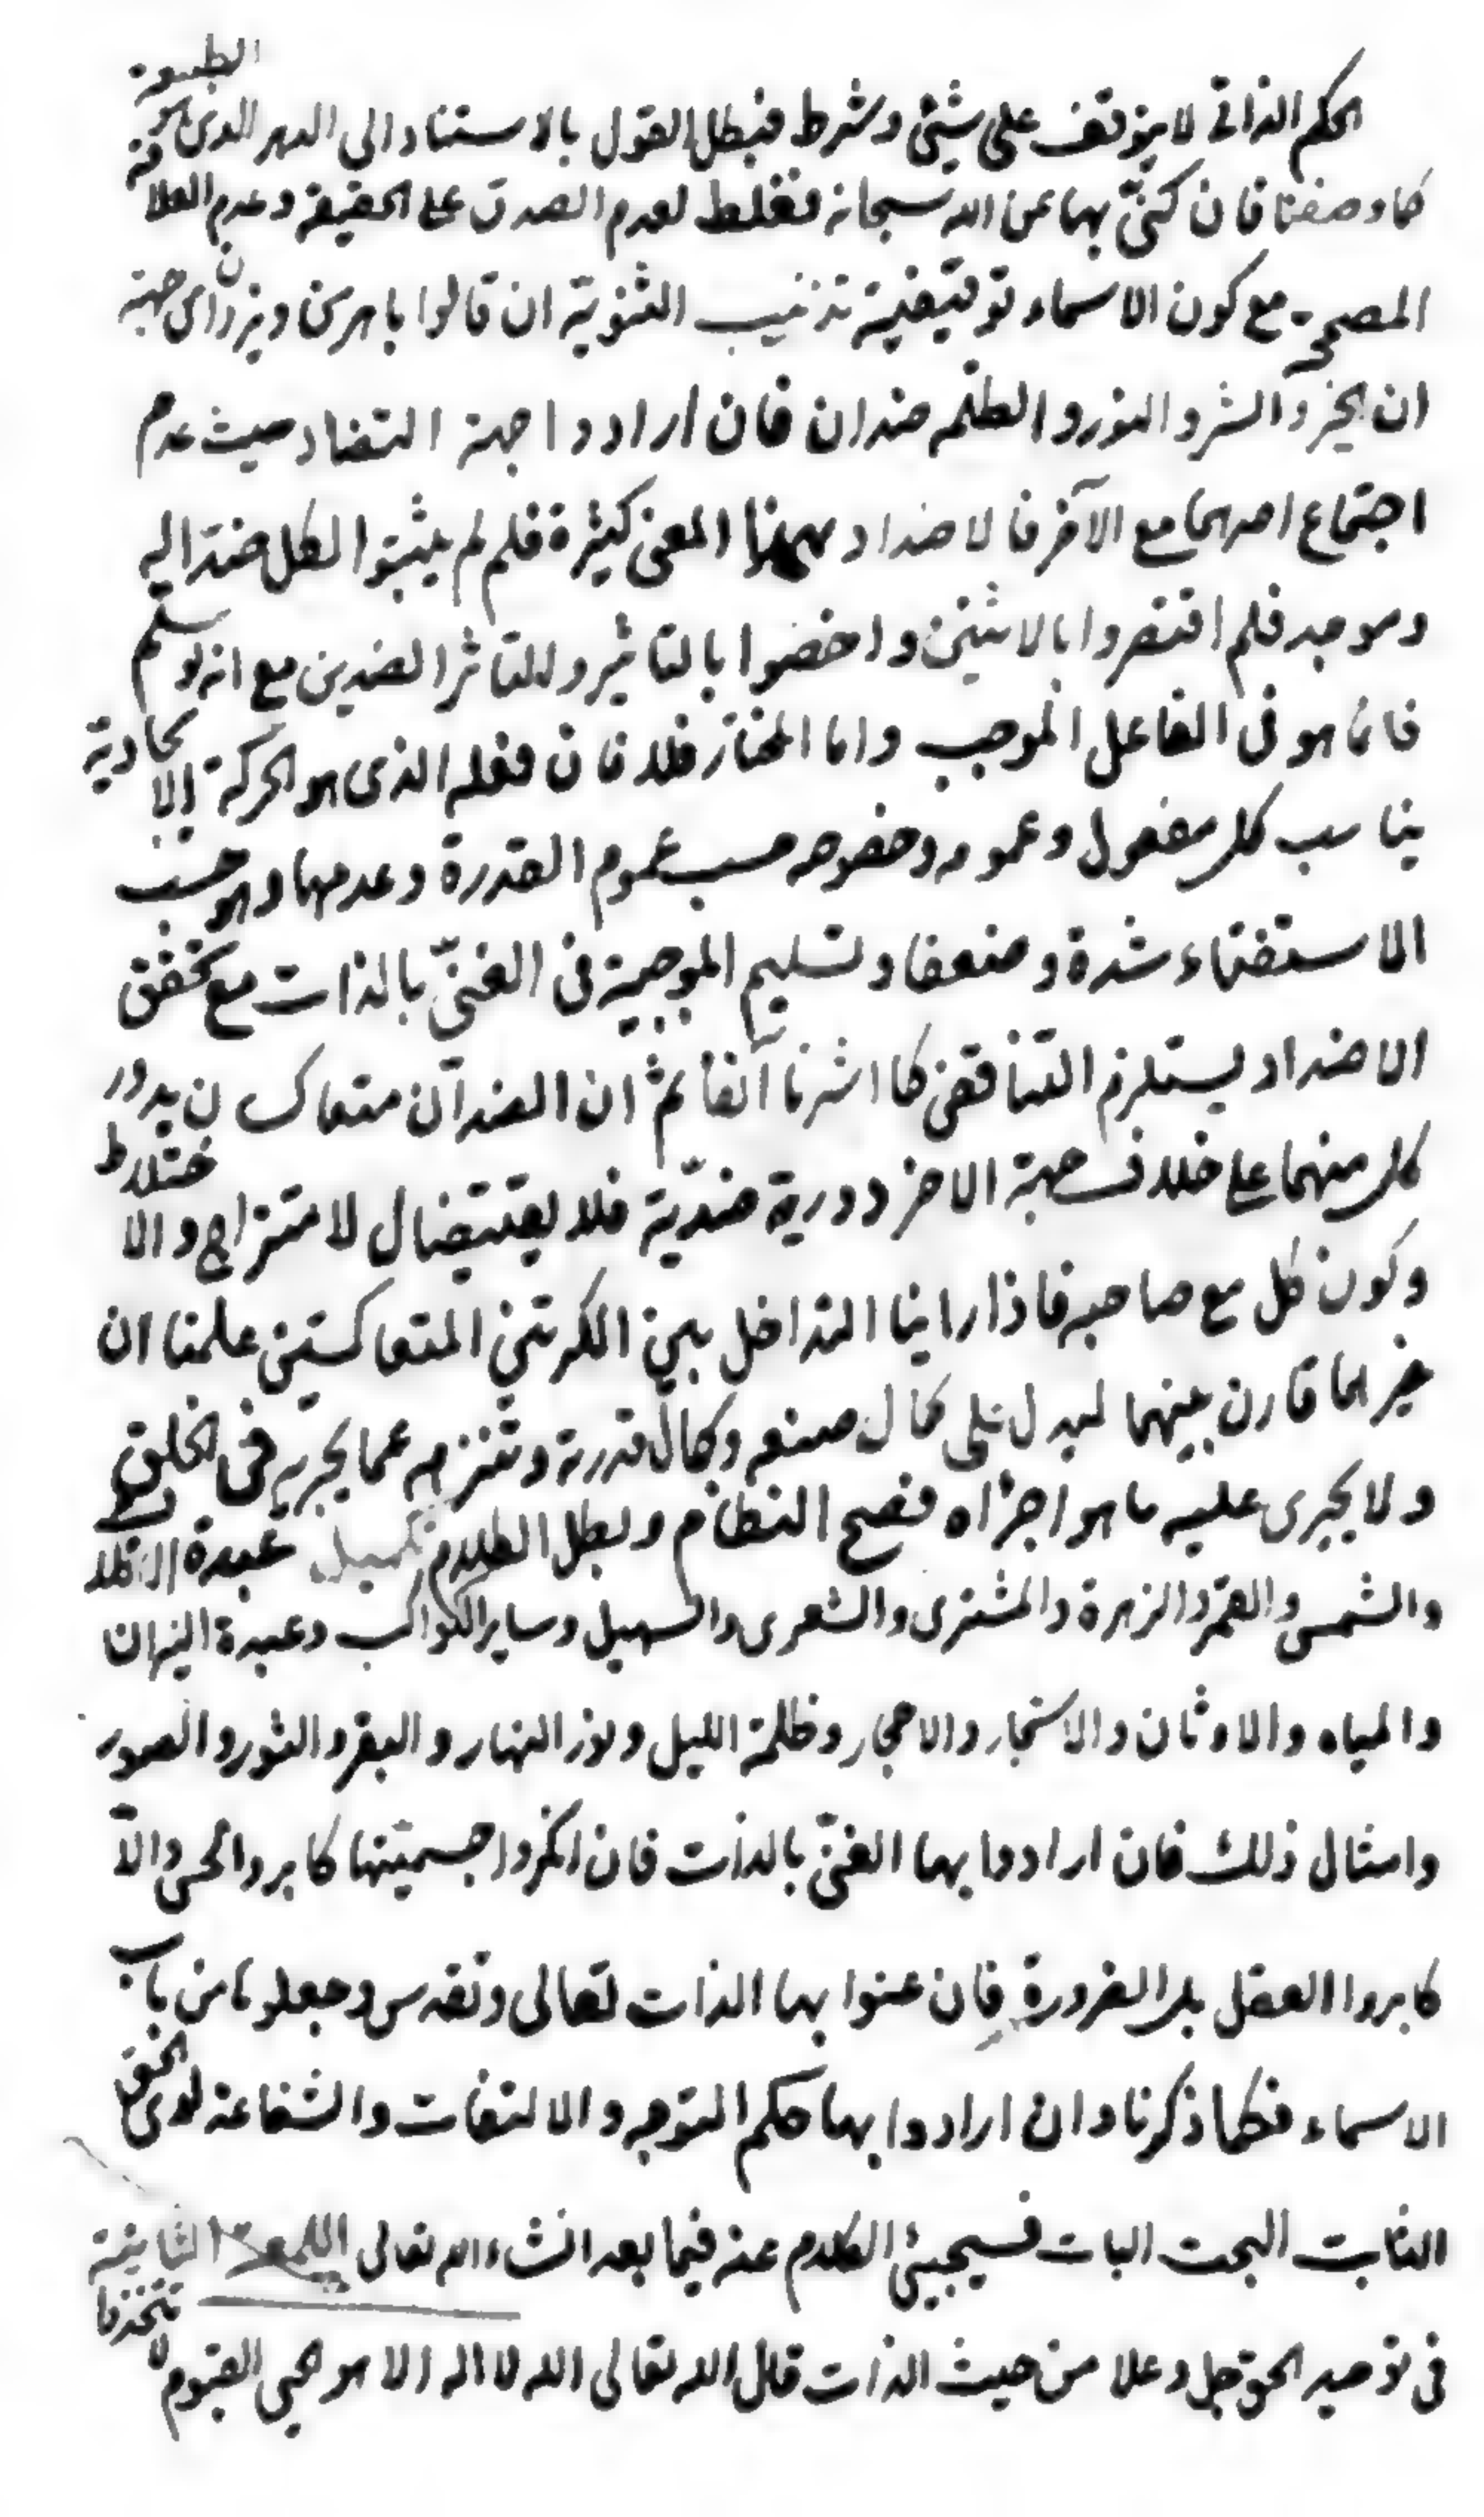 الحكم الذاتى لا يتوقف على شيئ وشرط فبطل القول بالاستناد الى الدهر الذى هو الطبيعة
كما وصفنا فان كنّى بها عن الله سبحانه فغلط لعدم الصدق على الحقيقة وعدم العلاقة
المصححة مع كون الاسماء توقيفية تذنيب الثنوية ان قالوا باهرمن ويزدان اى جهة
ان الخير والشر والنور والظلم ضدان فان ارادوا جهة التضاد حيث عدم
اجتماع احدهما مع الآخر فالاضداد بهذا المعنى كثيرة فلم لم يثبتوا لكل ضد اله
وموجد فلم اقتصروا بالاثنين واخصوا بالتاثير وللتاثر الضدين مع انه لو سلم
فانما هو فى الفاعل الموجب واما المختار فلا فان فعله الذى هو الحركة الايجادية
يناسب كل مفعول وعمومه وخصوصه حسب عموم القدرة وعدمها وهو حسب
الاستغناء شدة وضعفا وتسليم الموجبية فى الغنىّ بالذات مع تحقق
الاضداد يستلزم التناقض كما اشرنا آنفا ثم ان الضدان متعاكسان يدور
كل منهما على خلاف جهة الاخر دورية ضدّية فلا يقتضيان الامتزاج والاختلاط
وكون كل مع صاحبه فاذا راينا التداخل بين الكرتين المتعاكستين علمنا ان
غيرهما قارن بينهما ليدل على كمال صنعه وكمال قدرته وتنزهه عما يجريه فى الخلق
ولا يجرى عليه ما هو اجراه فصح النظام وبطل الظلام تكميل عبدة الافلاك
والشمس والقمر والزهرة والمشترى والشعرى والسهيل وساير الكواكب وعبدة النيران
والمياه والاوثان والاشجار والاحجار وظلمة الليل ونور النهار والبقر والثور والصور
وامثال ذلك فان ارادوا بها الغنىّ بالذات فان انكروا جسميتها كابروا الحس والاّ
كابروا العقل بل الضرورة فان عنوا بها الذات تعالى وتقدس وجعلوها من باب
الاسماء فكما ذكرنا وان ارادوا بها حكم التوجه والالتفات والشفاعة لدى الحق
الثابت البحت البات فسيجيئ الكلام عنه فيما بعد انشاء الله تعالى اللمعة الثانية
فى توحيد الحق جل وعلا من حيث الذات قال الله تعالى الله لا اله الا هو الحى القيوم لا تتخذوا